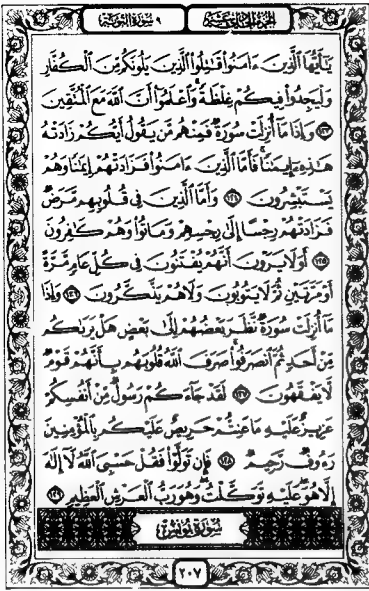 الجزء الحادي عشر ٩ سورة التوبة
يَٰٓأَيُّهَا ٱلَّذِينَ ءَامَنُوا۟ قَٰتِلُوا۟ ٱلَّذِينَ يَلُونَكُم مِّنَ ٱلْكُفَّارِ
وَلْيَجِدُوا۟ فِيكُمْ غِلْظَةً ۚ وَٱعْلَمُوٓا۟ أَنَّ ٱللَّهَ مَعَ ٱلْمُتَّقِينَ
١٢٣ وَإِذَا مَآ أُنزِلَتْ سُورَةٌ فَمِنْهُم مَّن يَقُولُ أَيُّكُمْ زَادَتْهُ
هَٰذِهِۦٓ إِيمَٰنًا ۚ فَأَمَّا ٱلَّذِينَ ءَامَنُوا۟ فَزَادَتْهُمْ إِيمَٰنًا وَهُمْ
يَسْتَبْشِرُونَ ١٢٤ وَأَمَّا ٱلَّذِينَ فِى قُلُوبِهِم مَّرَضٌ
فَزَادَتْهُمْ رِجْسًا إِلَىٰ رِجْسِهِمْ وَمَاتُوا۟ وَهُمْ كَٰفِرُونَ
١٢٥ أَوَلَا يَرَوْنَ أَنَّهُمْ يُفْتَنُونَ فِى كُلِّ عَامٍ مَّرَّةً
أَوْ مَرَّتَيْنِ ثُمَّ لَا يَتُوبُونَ وَلَا هُمْ يَذَّكَّرُونَ ١٢٦ وَإِذَا
مَآ أُنزِلَتْ سُورَةٌ نَّظَرَ بَعْضُهُمْ إِلَىٰ بَعْضٍ هَلْ يَرَىٰكُم
مِّنْ أَحَدٍ ثُمَّ ٱنصَرَفُوا۟ ۚ صَرَفَ ٱللَّهُ قُلُوبَهُم بِأَنَّهُمْ قَوْمٌ
لَّا يَفْقَهُونَ ١٢٧ لَقَدْ جَآءَكُمْ رَسُولٌ مِّنْ أَنفُسِكُمْ
عَزِيزٌ عَلَيْهِ مَا عَنِتُّمْ حَرِيصٌ عَلَيْكُم بِٱلْمُؤْمِنِينَ
رَءُوفٌ رَّحِيمٌ ١٢٨ فَإِن تَوَلَّوْا۟ فَقُلْ حَسْبِىَ ٱللَّهُ لَآ إِلَٰهَ
إِلَّا هُوَ ۖ عَلَيْهِ تَوَكَّلْتُ ۖ وَهُوَ رَبُّ ٱلْعَرْشِ ٱلْعَظِيمِ ١٢٩
سورة يونس
٢٠٧